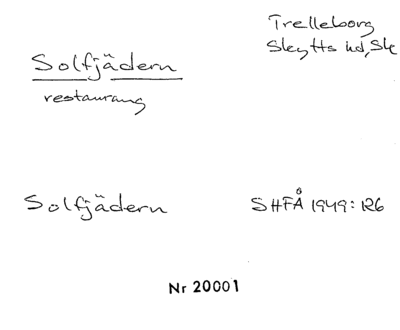 Trelleborg
Skytts hd, Sk
Solfjädern
restaurang
Solfjädern
SHFÅ 1949:126
Nr 20001